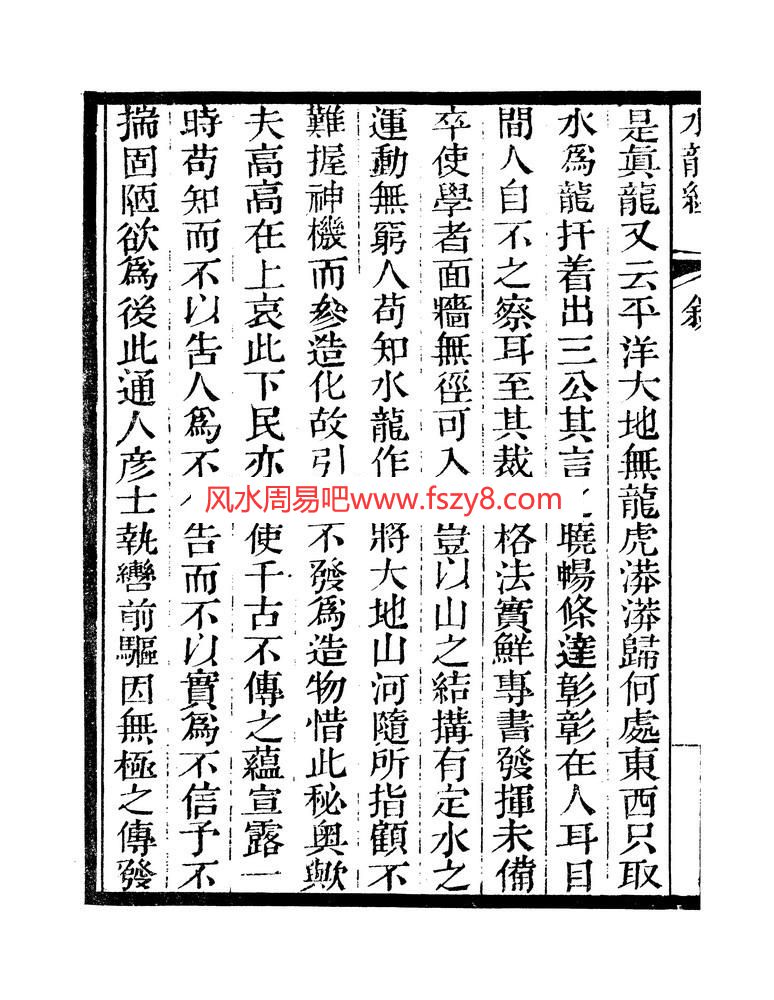 水龍經 敘
是眞龍又云平洋大地無龍虎漭漭歸何處東西只取
水爲龍扞着出三公其言 曉暢條達彰彰在人耳目
間人自不之察耳至其裁 格法實鮮專書發揮未備
卒使學者面牆無徑可入 豈以山之結搆有定水之
運動無窮人苟知水龍作 將大地山河隨所指顧不
難握神機而參造化故引 不發爲造物惜此秘奧歟
夫高高在上哀此下民亦 使千古不傳之蘊宣露一
時苟知而不以告人爲不 告而不以實爲不信予不
揣固陋欲爲後此通人彦士執轡前驅因無極之傳發
风水周易吧www.fszy8.com